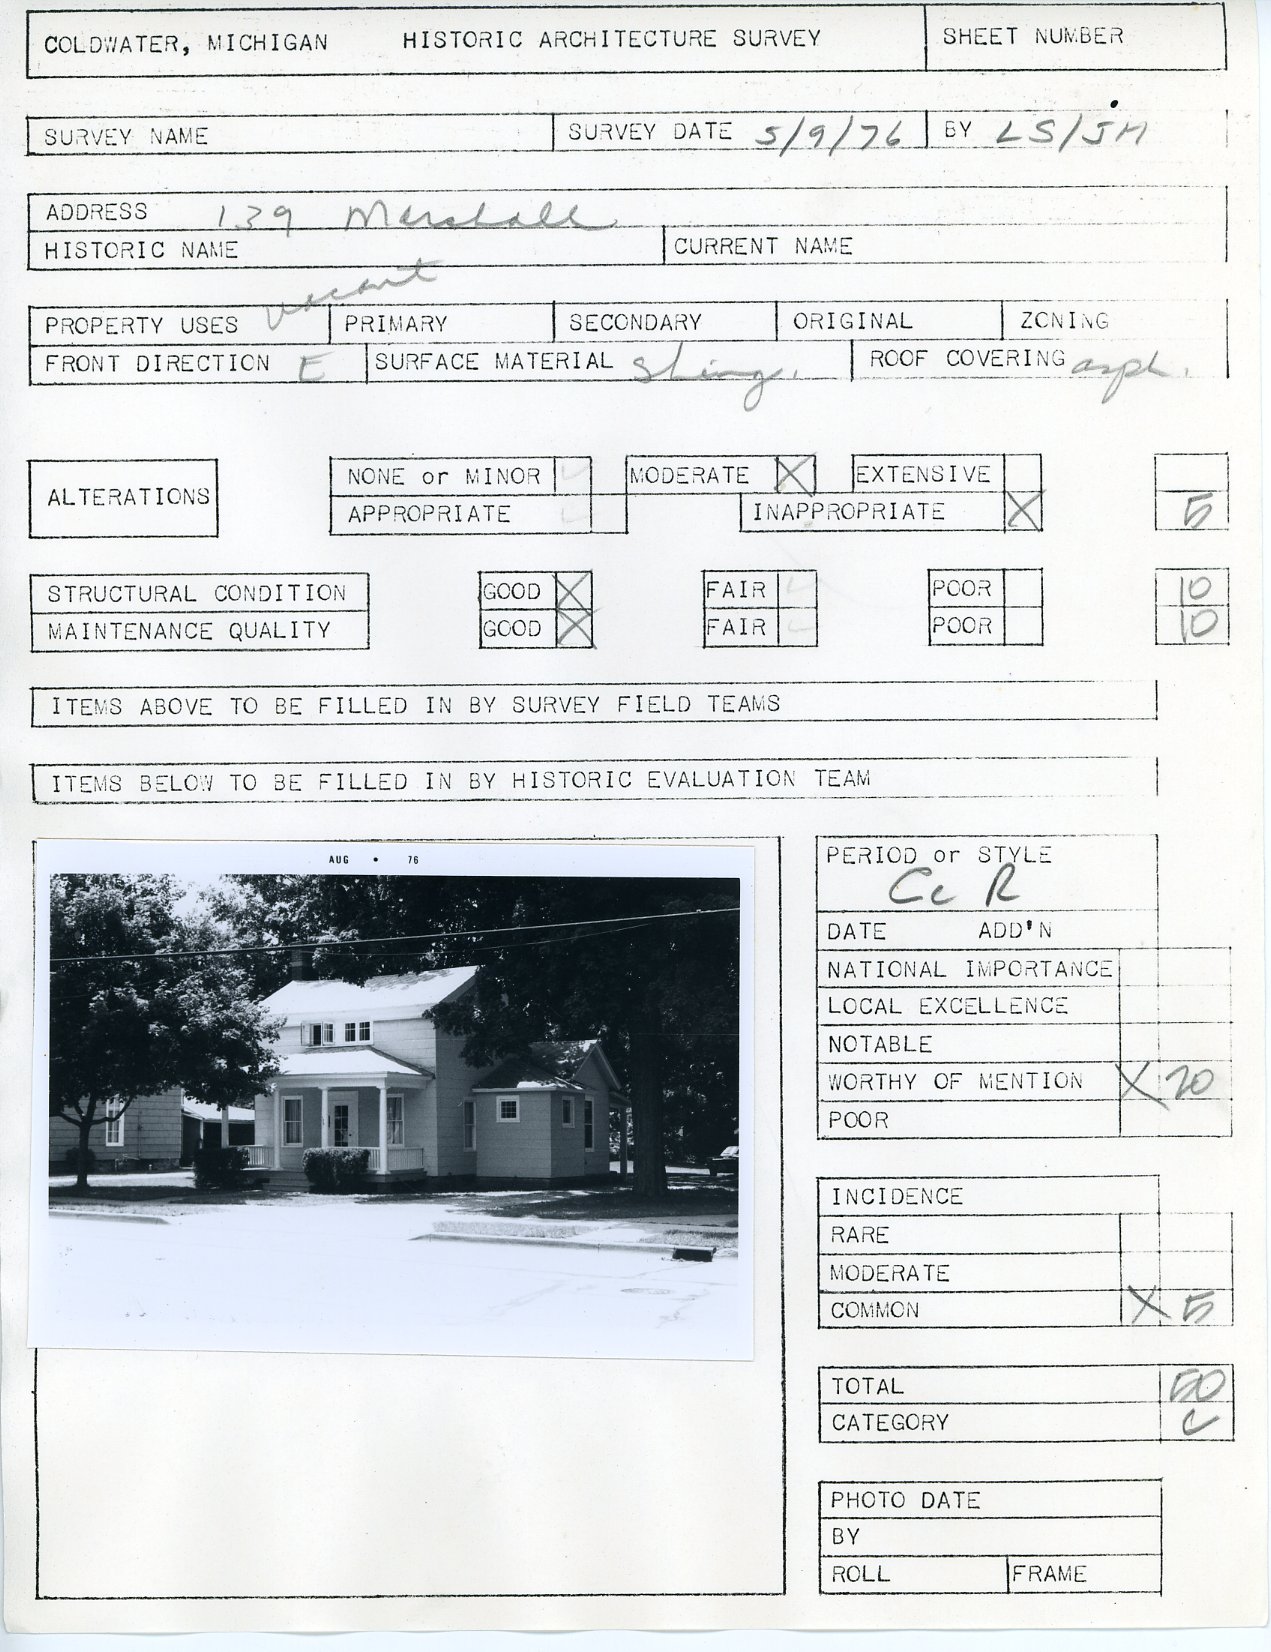 COLDWATER, MICHIGAN HISTORIC ARCHITECTURE SURVEY SHEET NUMBER
SURVEY NAME SURVEY DATE 5/9/76 BY LS/JM
ADDRESS 139 Marshall
HISTORIC NAME CURRENT NAME
PROPERTY USES vacant PRIMARY SECONDARY ORIGINAL ZONING
FRONT DIRECTION E SURFACE MATERIAL Shing. ROOF COVERING asph.
ALTERATIONS
NONE or MINOR MODERATE X EXTENSIVE
APPROPRIATE INAPPROPRIATE X 5
STRUCTURAL CONDITION GOOD X FAIR POOR 10
MAINTENANCE QUALITY GOOD X FAIR POOR 10
ITEMS ABOVE TO BE FILLED IN BY SURVEY FIELD TEAMS
ITEMS BELOW TO BE FILLED IN BY HISTORIC EVALUATION TEAM
AUG • 76
PERIOD or STYLE
Cc R
DATE ADD'N
NATIONAL IMPORTANCE
LOCAL EXCELLENCE
NOTABLE
WORTHY OF MENTION X 20
POOR
INCIDENCE
RARE
MODERATE
COMMON X 5
TOTAL 50
CATEGORY C
PHOTO DATE
BY
ROLL FRAME